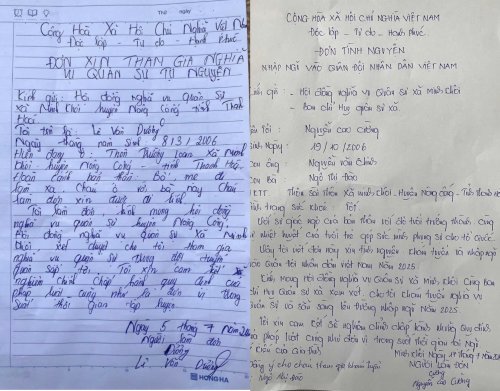 Thứ ngày
Cộng Hoà Xã Hội Chủ Nghĩa Việt Nam
Độc lập - Tự do - Hạnh phúc
ĐƠN XIN THAM GIA NGHĨA
VỤ QUÂN SỰ TỰ NGUYỆN
Kính gửi: Hội đồng nghĩa vụ Quân sự
xã Minh Khôi huyện Nông Cống tỉnh Thanh
Hoá
Tôi tên là: Lê Văn Dưỡng
Ngày tháng năm sinh 8/3/2006
Hiện đang ở: Thôn Thường xã Minh
Khôi huyện Nông Cống - tỉnh Thanh Hoá
Hoàn cảnh bản thân: Bố, mẹ đi
làm xa. Cháu ở với bà nay cháu
làm đơn xin được đi lính
Tôi làm đơn kính mong hội đồng
nghĩa vụ quân sự huyện Nông Cống
Hội đồng nghĩa vụ quân sự xã Minh
Khôi xét duyệt cho tôi tham gia
nghĩa vụ quân sự trong đợt tuyển
quân sắp tới. Tôi xin cam kết
nghiêm chỉnh chấp hành quy định của
pháp luật cũng như là đơn vị trong
suốt thời gian tập huấn
Ngày 5 tháng 7 năm
Người làm đơn
Dưỡng
Lê Văn Dưỡng
HONG HA
CỘNG HÒA XÃ HỘI CHỦ NGHĨA VIỆT NAM
Độc lập - Tự do - Hạnh phúc
ĐƠN TÌNH NGUYỆN
NHẬP NGŨ VÀO QUÂN ĐỘI NHÂN DÂN VIỆT NAM
gửi: - Hội đồng nghĩa vụ Quân sự xã Minh Khôi
- Ban chỉ huy quân sự xã
Tên Tôi: Nguyễn Cao Cường
Sinh Ngày: 19/10/2006
Con ông: Nguyễn Văn
Con Bà Ngô Thị Đào
xã Minh Khôi, Huyện Nông Cống - Tỉnh Thanh Hoá
Tình trạng sức khỏe: Tốt
Với sự giác ngộ của bản thân với độ tuổi trưởng thành cùng
nhiệt huyết của tuổi trẻ góp sức mình phụng sự cho tổ Quốc.
Vậy tôi viết đơn này xin tình nguyện tham tuyển và nhập ngũ
vào Quân đội nhân dân Việt Nam. Năm 2025.
Kính mong Hội đồng nghĩa vụ Quân sự xã Minh Khôi Cùng Ban
chỉ huy Quân sự xã xem xét, cho tôi tham tuyển nghĩa vụ
Quân sự và sẵn sàng lên đường nhập ngũ Năm 2025.
Tôi xin cam kết sẽ nghiêm chỉnh chấp hành những Quy định
của pháp luật và của đơn vị trong suốt thời gian tại ngũ
Ý kiến của Gia đình:
Minh Khôi Ngày tháng 7 năm
đồng ý cho cháu tham gia khám tuyển
NGƯỜI LÀM ĐƠN
Cường
Ngô Thị Đào
Nguyễn Cao Cường